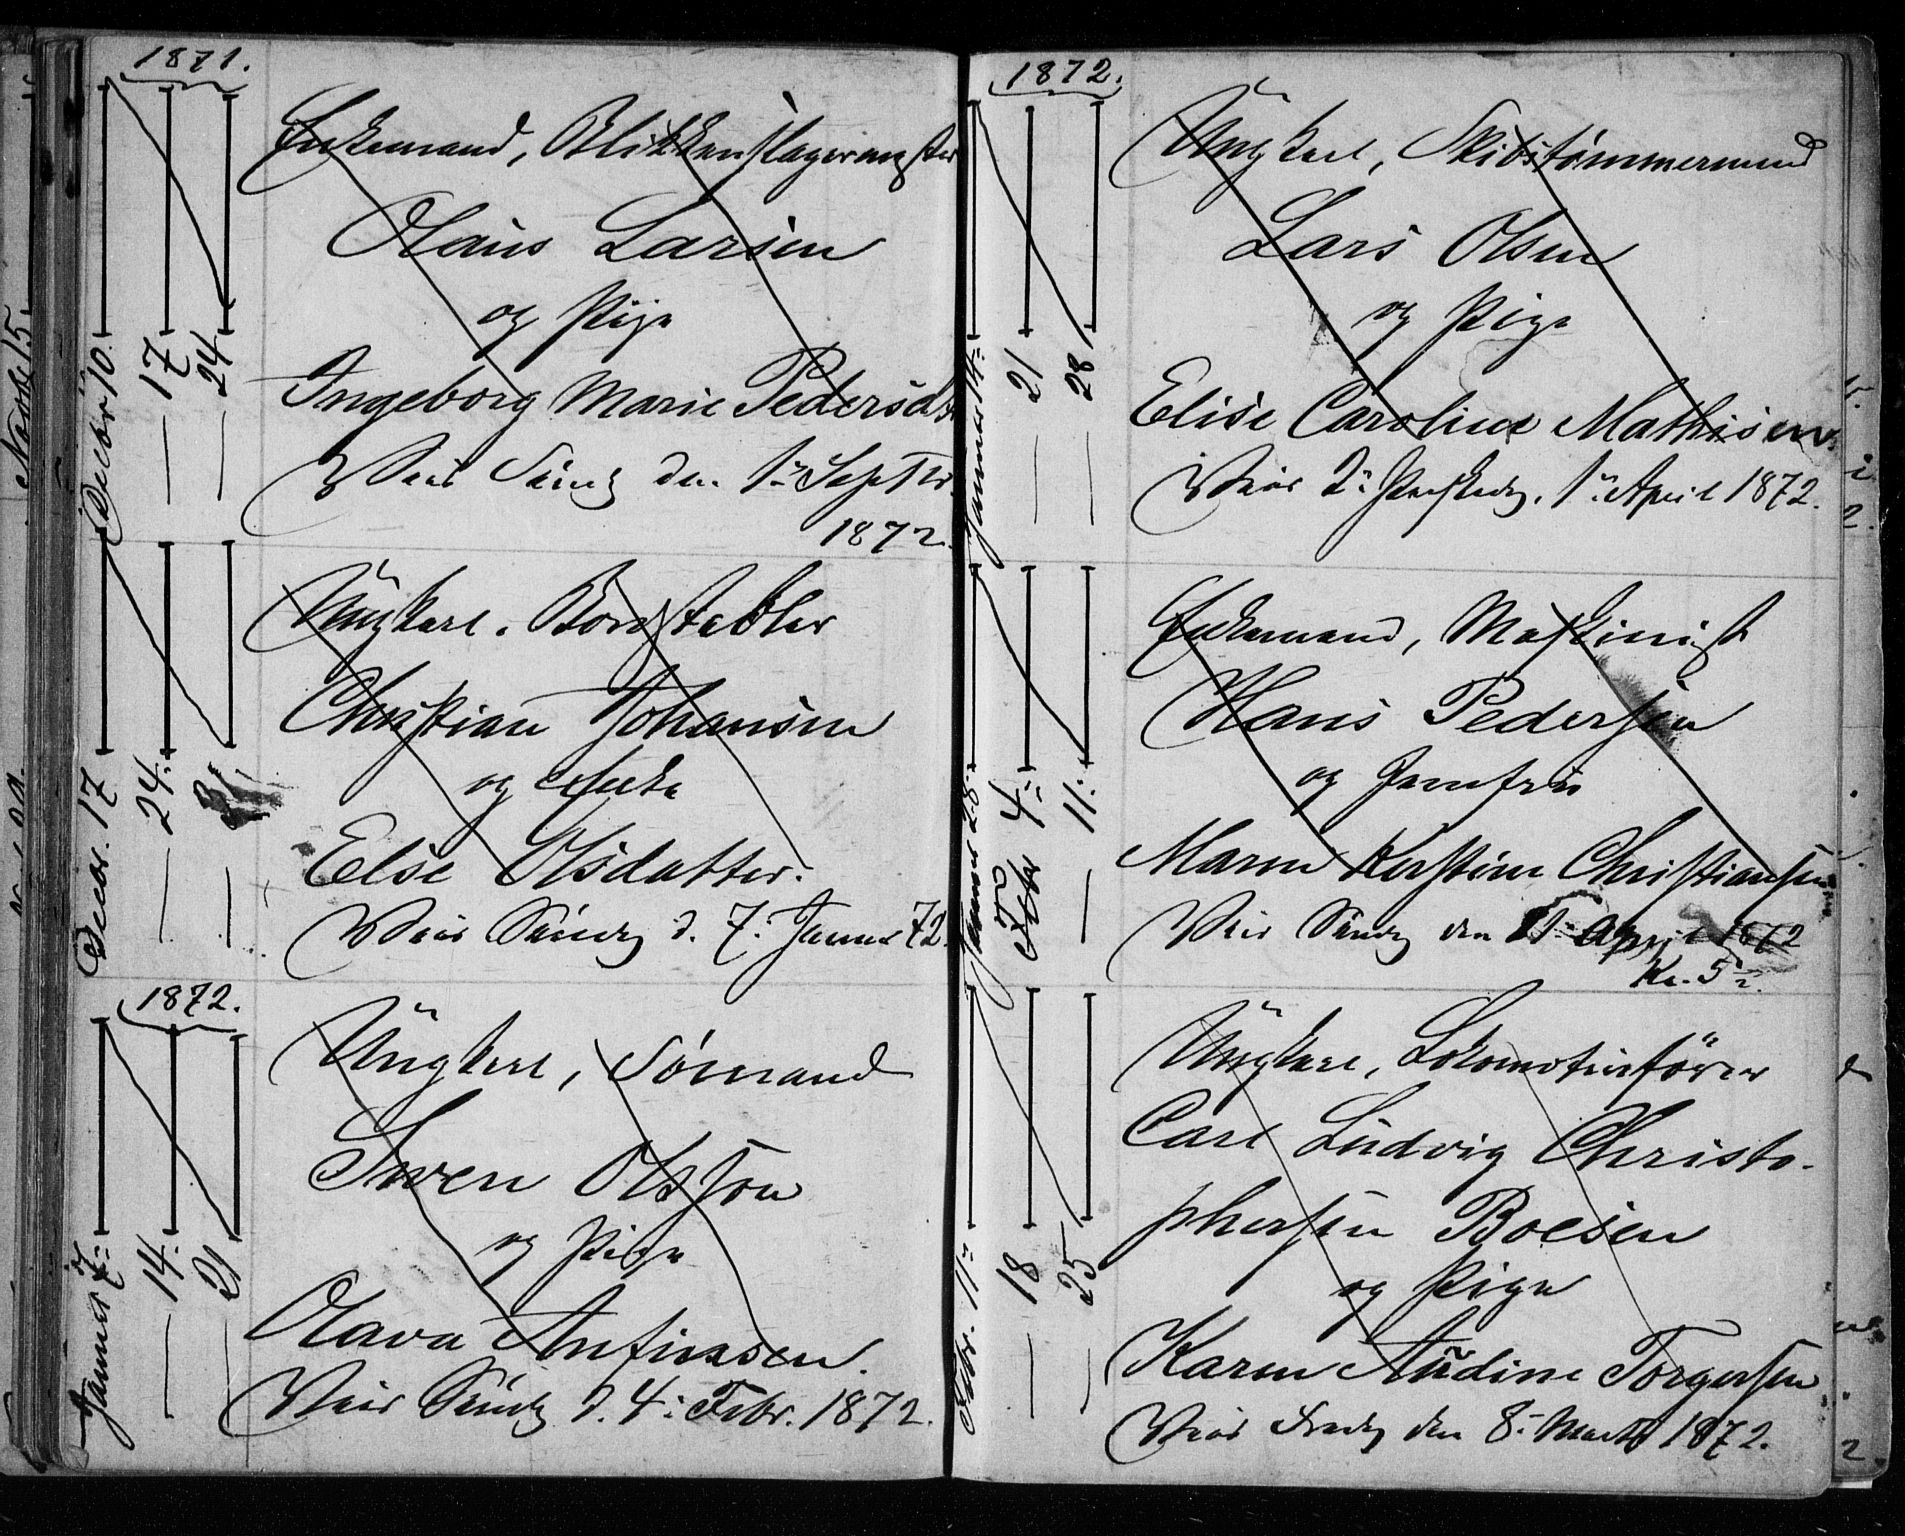 1871.
Decbr 10.
— 17 —
— 24 —
Enkemand, Blikkenslagermester
Olaus Larsen
og Pige
Ingeborg Marie Pedersdtr
Viet Søndg den 1ste Septbr.
1872.
Decbr. 17
— 24. —
— 31. —
Ungkarl. Bordstabler
Christian Johansen
og Enke
Else Olsdatter.
Viet Søndg d. 7. Januar 72.
1872.
Januar 7.
— 14. —
— 21 —
Ungkarl, Sømand
Swen Olsson
og Pige
Olava Anfinssen.
Viet Søndg d. 4. Febr. 1872.
1872.
Januar 14.
— 21 —
— 28 —
Ungkarl, Skibstømmermand
Lars Olsen
og Pige
Elise Caroline Mathisen
Viet 2. Paaskedg. 1. April 1872.
Januar 28.
Febr 4.
— 11. —
Enkemand, Maskinist
Hans Pedersen
og Jomfru
Maren Kirstine Christiansen
Viet Søndg den 21 April 1872
Kl. 5
Febr. 11
— 18 —
— 25 —
Ungkarl, Lokomotivfører
Carl Ludvig Christo-
phersen Boesen
og Pige
Karen Audine Torgersen
Viet Fredg den 8. Marts 1872.